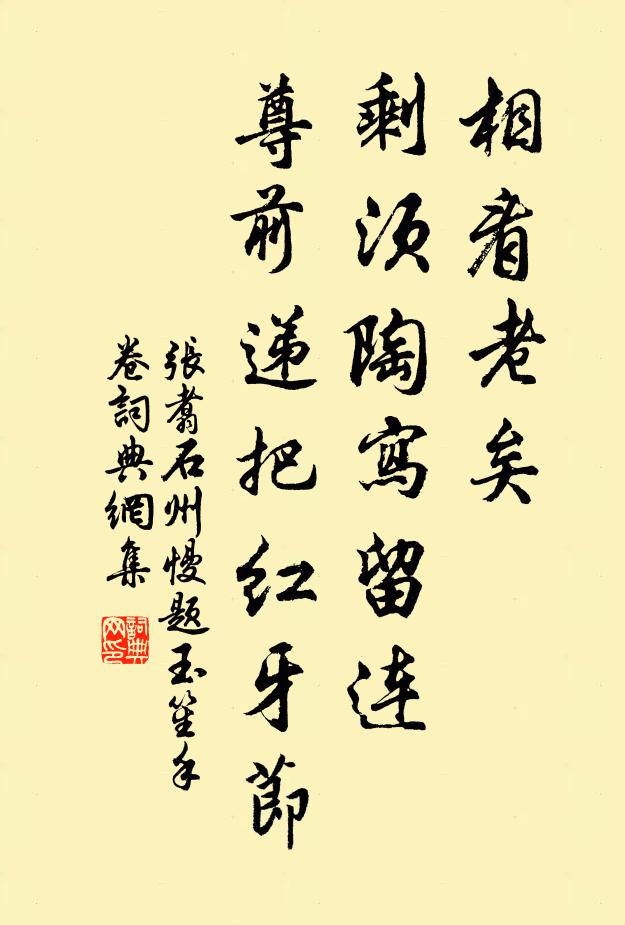 相看老矣
剩須陶寫留連
尊前递把红牙節
張翥石州慢題玉笙手
卷詞典網集
詞典
网印